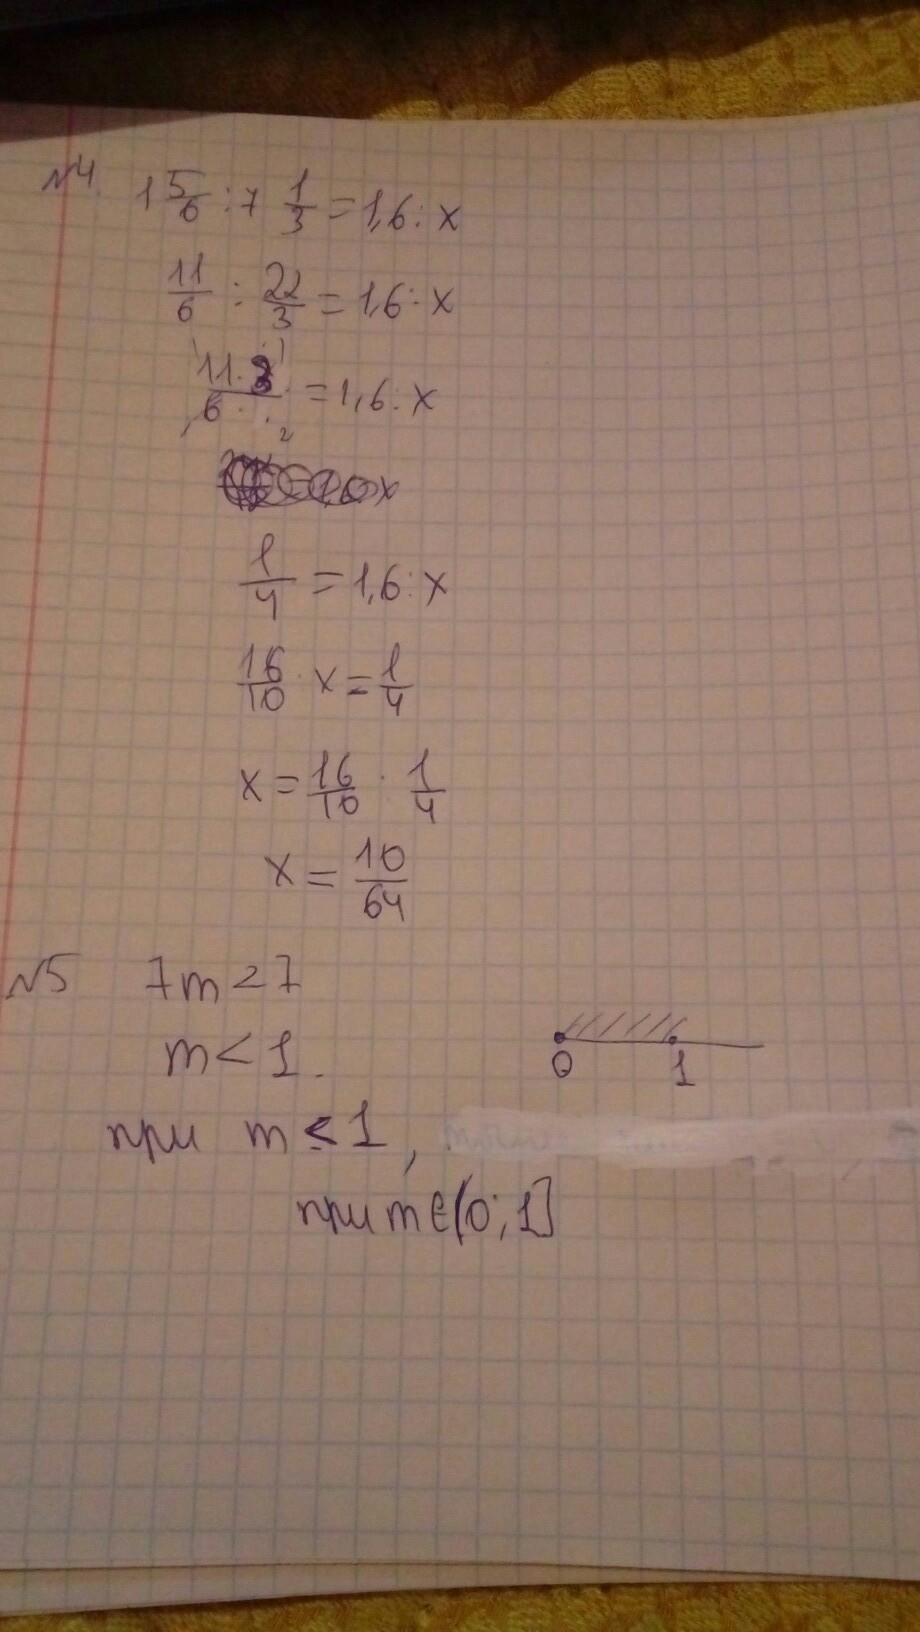 №4. 1 5/6 : 7 1/3 = 1,6 : x
11/6 : 22/3 = 1,6 : x
11·3/6· 2 = 1,6 : x
1/4 = 1,6 : x
16/10 · x = 1/4
x = 16/10 · 1/4
x = 10/64
№5 7m < 7
m < 1.
0 1
при m ≤ 1,
при m ∈ (0; 1]